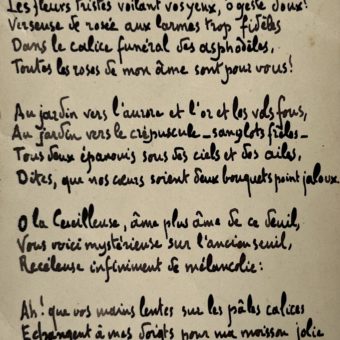 Les fleurs tristes voilant vos yeux, ô geste doux!
Verseuse de rosée aux larmes trop fidèles
Dans le calice funéral des asphodèles,
Toutes les roses de mon âme sont pour vous!
Au jardin vers l'aurore et l'or et les vols fous,
Au jardin vers le crépuscule – sanglots frêles –
Tous deux épanouis sous des ciels et des ailes,
Dites, que nos cœurs soient deux bouquets point jaloux.
O la Cueilleuse, âme plus âme de ce deuil,
Vous voici mystérieuse sur l'ancien seuil,
Recéleuse infiniment de mélancolie:
Ah! que vos mains lentes sur les pâles calices
Echangent à mes doigts pour ma moisson jolie